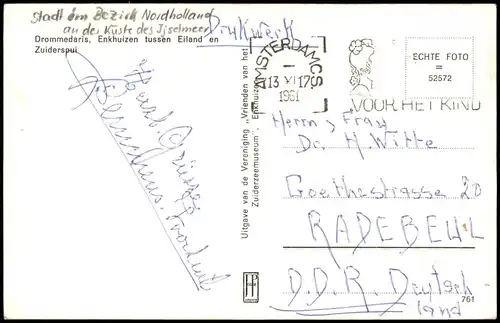 Stadt im Bezirk Nordholland
an der Küste des Ijselmeer
Drommedaris, Enkhuizen tussen Eiland en
Zuiderspui
Drukwerk
AMSTERDAM CS
13 XI 17
1961
VOOR HET KIND
ECHTE FOTO
=
52572
Herzl. Grüsse
Uitgave van de Vereniging „Vrienden van het
Zuiderzeemuseum” Enkhuizen
Herrn & Frau
Dr. H. Witte
Goethestrasse 20
RADEBEUL
D.D.R. Deutsch-
land
761